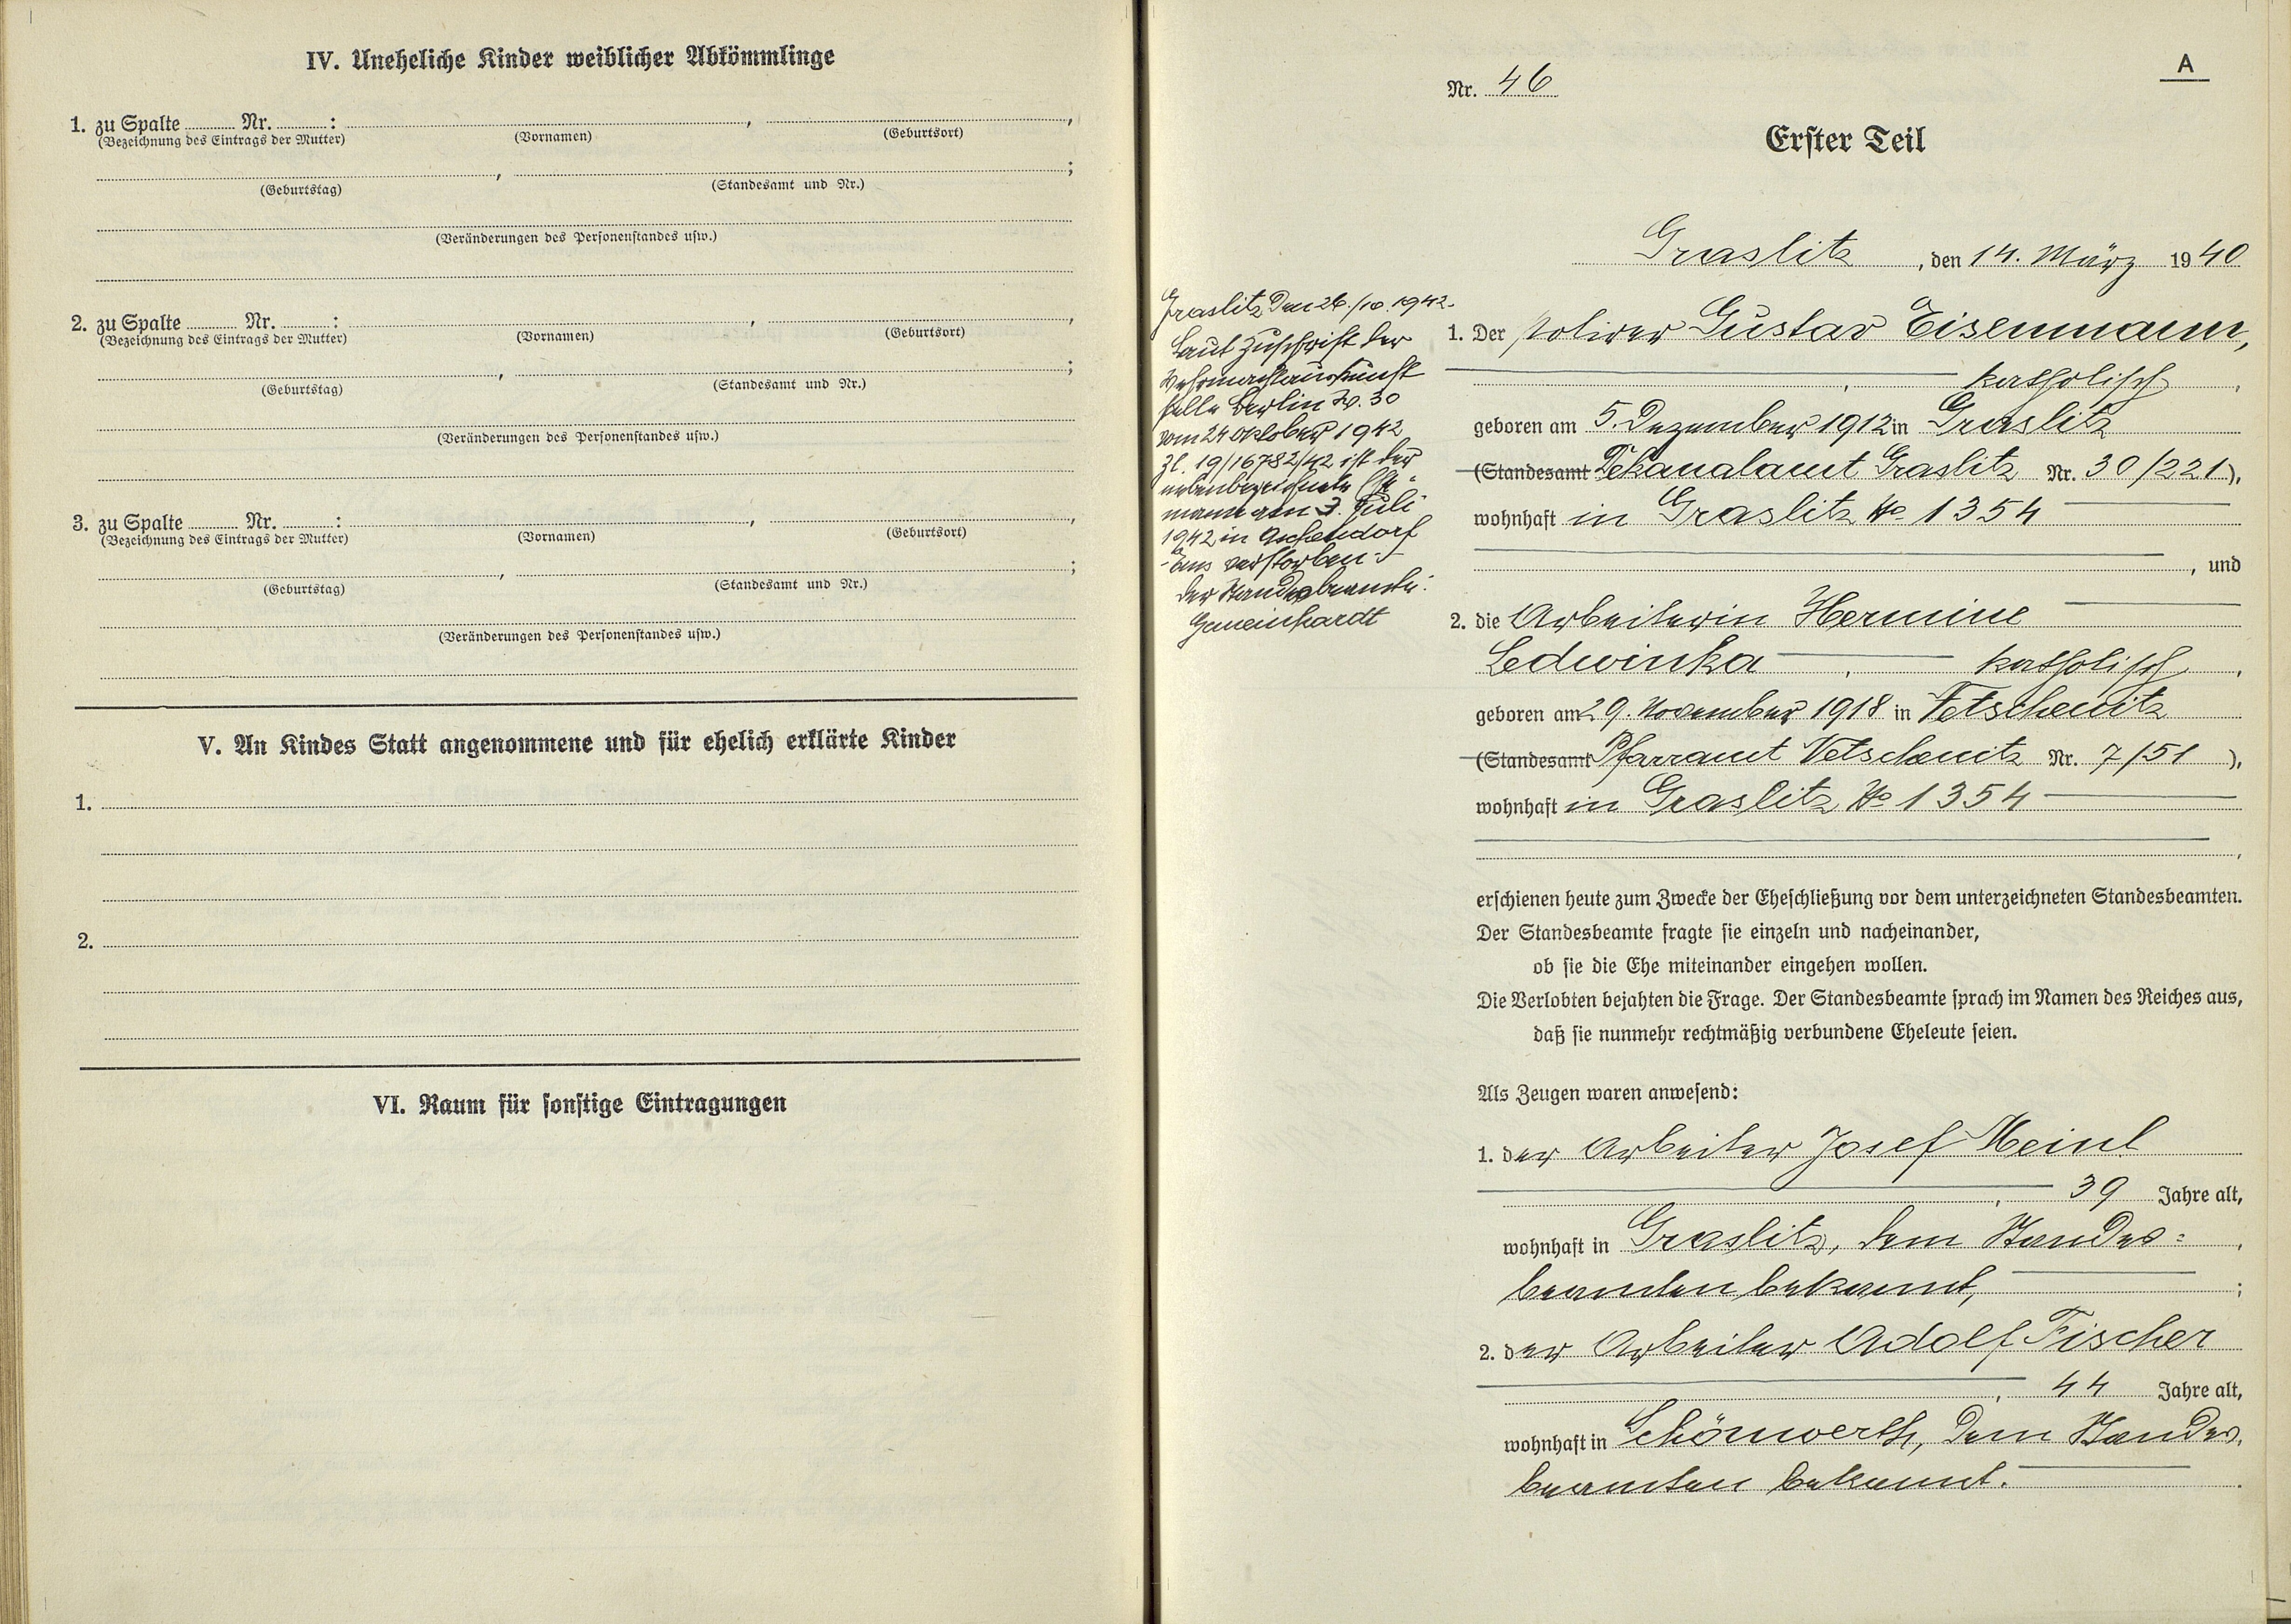 IV. Uneheliche Kinder weiblicher Abkömmlinge
1. zu Spalte ........ Nr. ........ : , ,
(Bezeichnung des Eintrags der Mutter) (Vornamen) (Geburtsort)
, ;
(Geburtstag) (Standesamt und Nr.)
(Veränderungen des Personenstandes usw.)
2. zu Spalte ........ Nr. ........ : , ,
(Bezeichnung des Eintrags der Mutter) (Vornamen) (Geburtsort)
, ;
(Geburtstag) (Standesamt und Nr.)
(Veränderungen des Personenstandes usw.)
3. zu Spalte ........ Nr. ........ : , ,
(Bezeichnung des Eintrags der Mutter) (Vornamen) (Geburtsort)
, ;
(Geburtstag) (Standesamt und Nr.)
(Veränderungen des Personenstandes usw.)
V. An Kindes Statt angenommene und für ehelich erklärte Kinder
1.
2.
VI. Raum für sonstige Eintragungen
A
Nr. 46
Erster Teil
Graslitz, den 14. März 1940
Graslitz den 26./10.1942.
Laut Zuschrift der
Wehrmachtauskunft
stelle Berlin W. 30
vom 24 Oktober 1942
Zl. 19/16782/42 ist der
nebenbezeichnete Ehe-
mann am 3. Juli
1942 in Aschendorf
Ems verstorben.
Der Standesbeamte:
Gemeinhardt
1. Der Polirer Gustav Eisenmann,
, katholisch,
geboren am 5. Dezember 1912 in Graslitz
(Standesamt Dekanalamt Graslitz Nr. 30/221),
wohnhaft in Graslitz No 1354
, und
2. die Arbeiterin Hermine
Ledwinka, katholisch,
geboren am 29. November 1918 in Tetschenitz
(Standesamt Pfarramt Vetschenitz Nr. 7/51 ),
wohnhaft in Graslitz No 1354
,
erschienen heute zum Zwecke der Eheschließung vor dem unterzeichneten Standesbeamten.
Der Standesbeamte fragte sie einzeln und nacheinander,
ob sie die Ehe miteinander eingehen wollen.
Die Verlobten bejahten die Frage. Der Standesbeamte sprach im Namen des Reiches aus,
daß sie nunmehr rechtmäßig verbundene Eheleute seien.
Als Zeugen waren anwesend:
1. der Arbeiter Josef Meinl
, 39 Jahre alt,
wohnhaft in Graslitz, dem Standes= ,
beamten bekannt, ;
2. der Arbeiter Adolf Fischer
, 44 Jahre alt,
wohnhaft in Schönwerth, dem Standes,
beamten bekannt. .